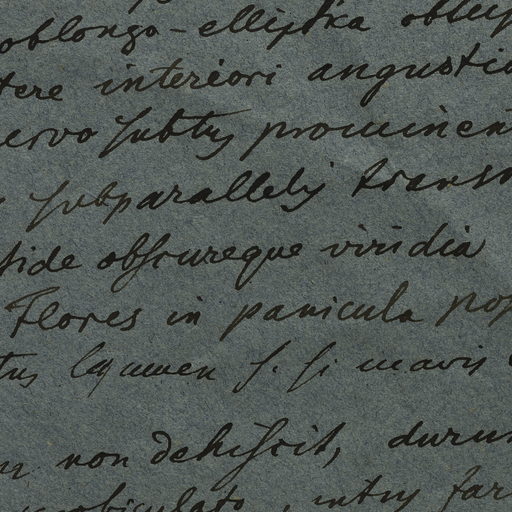 oblongo-elliptica obtus
tere interiori angustio
ervo subtus prominent
subparallelis transv
tide obscureque viridia
Flores in panicula pop
tus legumen s. si mavis
non dehiscit, durum
orbiculato, intus far